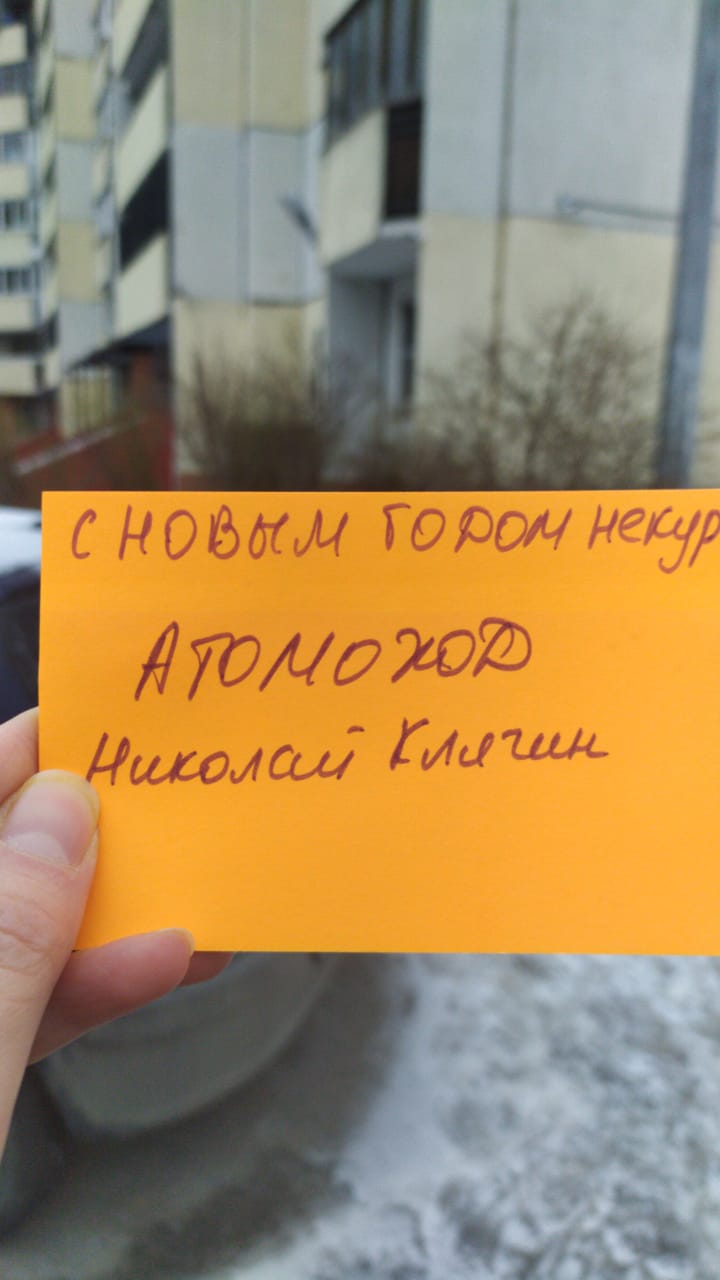 С НОВЫМ ГОДОМ некур
АТОМОХОД
Николай Клячин